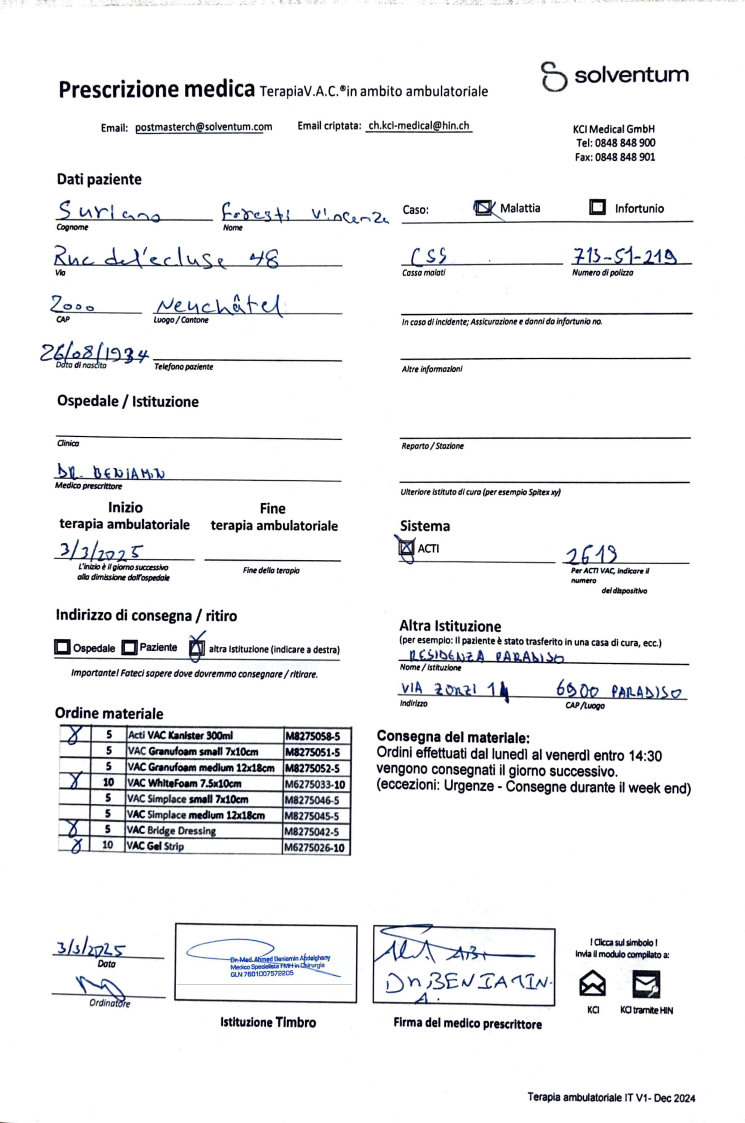 solventum
Prescrizione medica TerapiaV.A.C.®in ambito ambulatoriale
Email: postmasterch@solventum.com Email criptata: ch.kci-medical@hin.ch
KCI Medical GmbH
Tel: 0848 848 900
Fax: 0848 848 901
Dati paziente
Suriano Foresti Vincenza
Cognome Nome
Caso: Malattia Infortunio
Rue de l'écluse 48
Via
CSS 713-51-219
Cassa malati Numero di polizza
2000 Neuchâtel
CAP Luogo / Cantone
In caso di incidente; Assicurazione e danni da infortunio no.
26/08/1934
Data di nascita Telefono paziente
Altre informazioni
Ospedale / Istituzione
Clinica
Reparto / Stazione
DR. BENIAMIN
Medico prescrittore
Ulteriore istituto di cura (per esempio Spitex xy)
Inizio terapia ambulatoriale
Fine terapia ambulatoriale
3/3/2025
L'inizio è il giorno successivo
alla dimissione dall'ospedale
Fine della terapia
Sistema
ACTI 2619
Per ACTI VAC, indicare il
numero
del dispositivo
Indirizzo di consegna / ritiro
Ospedale Paziente altra istituzione (indicare a destra)
Importante! Fateci sapere dove dovremmo consegnare / ritirare.
Altra Istituzione
(per esempio: Il paziente è stato trasferito in una casa di cura, ecc.)
RESIDENZA PARADISO
Nome / Istituzione
VIA ZORZI 14 6900 PARADISO
Indirizzo CAP/Luogo
Ordine materiale
5 Acti VAC Kanister 300ml M8275058-5
5 VAC Granufoam small 7x10cm M8275051-5
5 VAC Granufoam medium 12x18cm M8275052-5
10 VAC WhiteFoam 7.5x10cm M6275033-10
5 VAC Simplace small 7x10cm M8275046-5
5 VAC Simplace medium 12x18cm M8275045-5
5 VAC Bridge Dressing M8275042-5
10 VAC Gel Strip M6275026-10
Consegna del materiale:
Ordini effettuati dal lunedì al venerdì entro 14:30
vengono consegnati il giorno successivo.
(eccezioni: Urgenze - Consegne durante il week end)
3/3/2025
Data
Ordinatore
Dr. Med. Ahmed Beniamin Abdelghany
Medico Specialista FMH in Chirurgia
GLN 7601007572205
Istituzione Timbro
Dr BENIAMIN.
A.
Firma del medico prescrittore
! Clicca sul simbolo !
Invia il modulo compilato a:
KCI KCI tramite HIN
Terapia ambulatoriale IT V1- Dec 2024